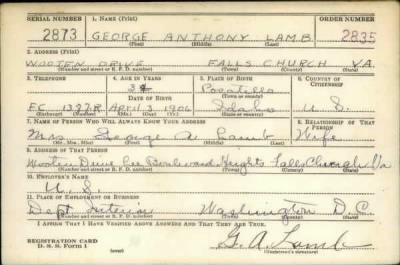 SERIAL NUMBER 1. NAME (Print) ORDER NUMBER
2873 GEORGE ANTHONY LAMB 2835
(First) (Middle) (Last)
2. ADDRESS (Print)
WOOTEN DRIVE FALLS CHURCH VA.
(Number and street or R. F. D. number) (Town) (County) (State)
3. TELEPHONE 4. AGE IN YEARS 5. PLACE OF BIRTH 6. COUNTRY OF CITIZENSHIP
34 Pocatello
DATE OF BIRTH (Town or county)
F.C. 1377R April 3 1906 Idaho U. S.
(Exchange) (Number) (Mo.) (Day) (Yr.) (State or country)
7. NAME OF PERSON WHO WILL ALWAYS KNOW YOUR ADDRESS 8. RELATIONSHIP OF THAT PERSON
Mrs George A Lamb Wife
(Mr., Mrs., Miss) (First) (Middle) (Last)
9. ADDRESS OF THAT PERSON
Wooten Drive Lee Boulevard Heights Falls Church Va
(Number and street or R. F. D. number) (Town) (County) (State)
10. EMPLOYER'S NAME
U. S.
11. PLACE OF EMPLOYMENT OR BUSINESS
Dept Interior Washington D C
(Number and street or R. F. D. number) (Town) (County) (State)
I AFFIRM THAT I HAVE VERIFIED ABOVE ANSWERS AND THAT THEY ARE TRUE.
REGISTRATION CARD
D. S. S. Form 1 G. A. Lamb
(Registrant's signature)